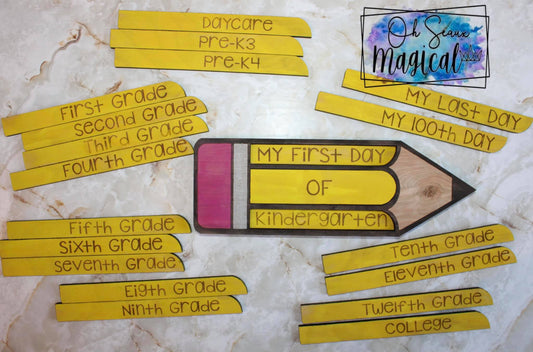 Daycare
Pre-K3
Pre-K4
Oh Seaux
Magical
My Last Day
My 100th Day
First Grade
Second Grade
Third Grade
Fourth Grade
My First Day
OF
Kindergarten
Fifth Grade
Sixth Grade
Seventh Grade
Eigth Grade
Ninth Grade
Tenth Grade
Eleventh Grade
Twelfth Grade
College